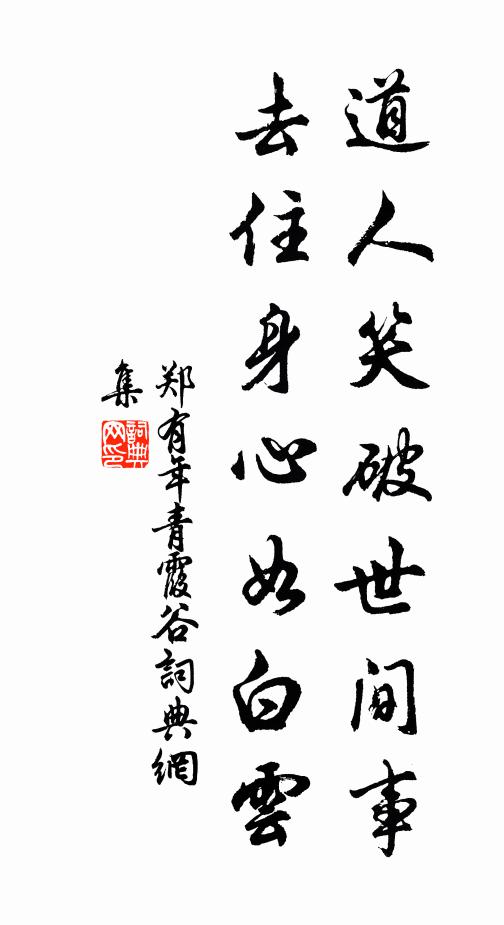 道人笑破世间事
去住身心如白雲
郑有年青霞谷詞典網
集
詞典
网印